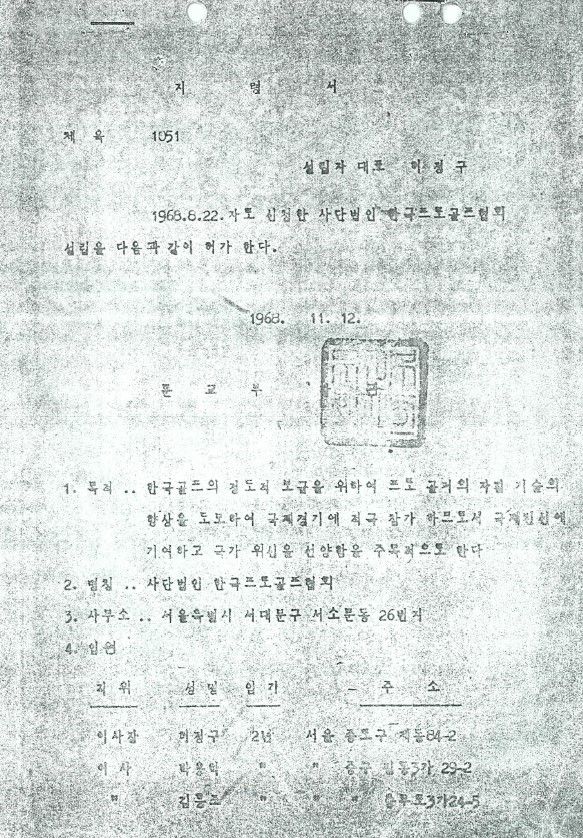 지 령 서
체 육 1051
설립자 대표 이 정 구
1968.8.22.자로 신청한 사단법인 한국프로골프협회
설립을 다음과 같이 허가 한다.
1968. 11. 12.
문 교 부
1. 목적 .. 한국골프의 정도적 보급을 위하여 프로 골퍼의 자질 기술의
향상을 도모하여 국제경기에 적극 참가 하므로서 국제친선에
기여하고 국가 위신을 선양함을 주목적으로 한다
2. 명칭 .. 사단법인 한국프로골프협회
3. 사무소 .. 서울특별시 서대문구 서소문동 26번지
4. 임원
직 위 성 명 임 기 주 소
이사장 이정구 2년 서울 종로구 제동84-2
이 사 박용익 " " 중구 필동3가 29-2
" " " " 3가24-5